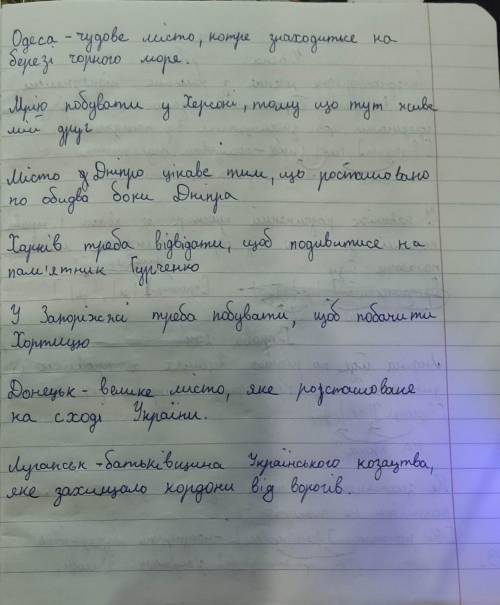 Одеса - чудове місто, котре знаходитьсе на
березі чорного море.
Мрію побувати у Херсоні, тому що тут живе
мій друг
Місто Дніпро цікаве тим, що росташовано
по обидва боки Дніпра
Харків треба відвідати, щоб подивитисе на
пам'ятник Гурченко
У Запоріжжі треба побувати, щоб побачити
Хортицю
Донецьк - велике місто, яке розсташоване
на сході України.
Луганськ - батьківщина Українського козацтва,
яке захищало кордони від ворогів.